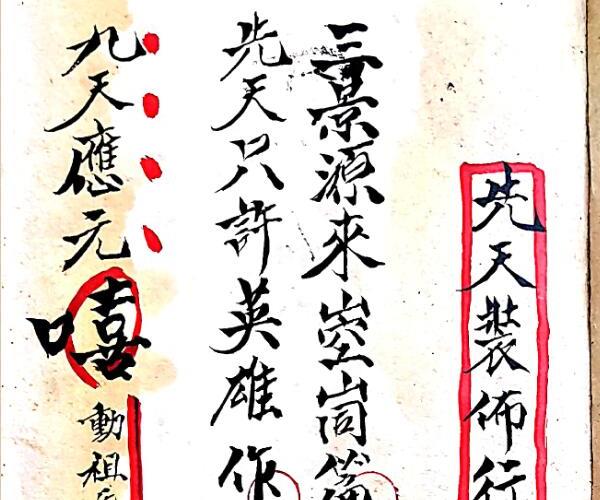 先天裝佈行
三景源來崆峒
先天只許英雄作
九天應元嘻
動祖